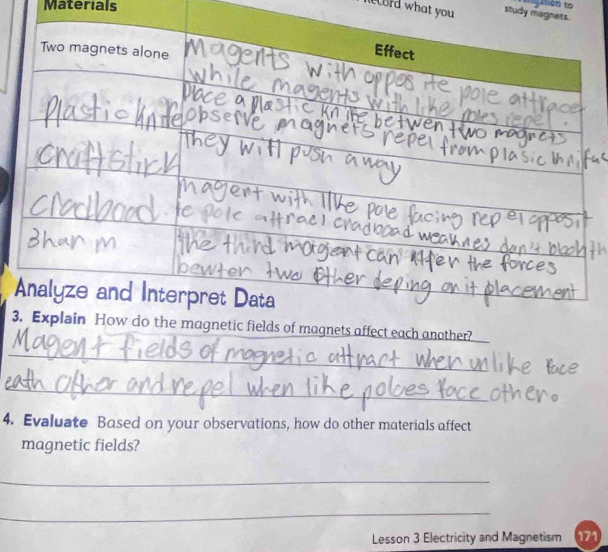 Materials
Record what you
study magnets.
Effect
Two magnets alone
Magents with opposite pole attract
while magents with like poles repel.
Place a plastic knife betwen two magnets
Plastic knife observe magnets repel from plasic
They will push away
craft stirk
magent with like pole facing repel opposit
cradboad. te pole attract cradboad weaknes don't
3har m the third magent can the forces
bewter two other deping on it placement
Analyze and Interpret Data
3. Explain How do the magnetic fields of magnets affect each another?
Magent fields of magnetic attract when unlike face
eath other and repel when like poloes face other.
4. Evaluate Based on your observations, how do other materials affect
magnetic fields?
Lesson 3 Electricity and Magnetism 171